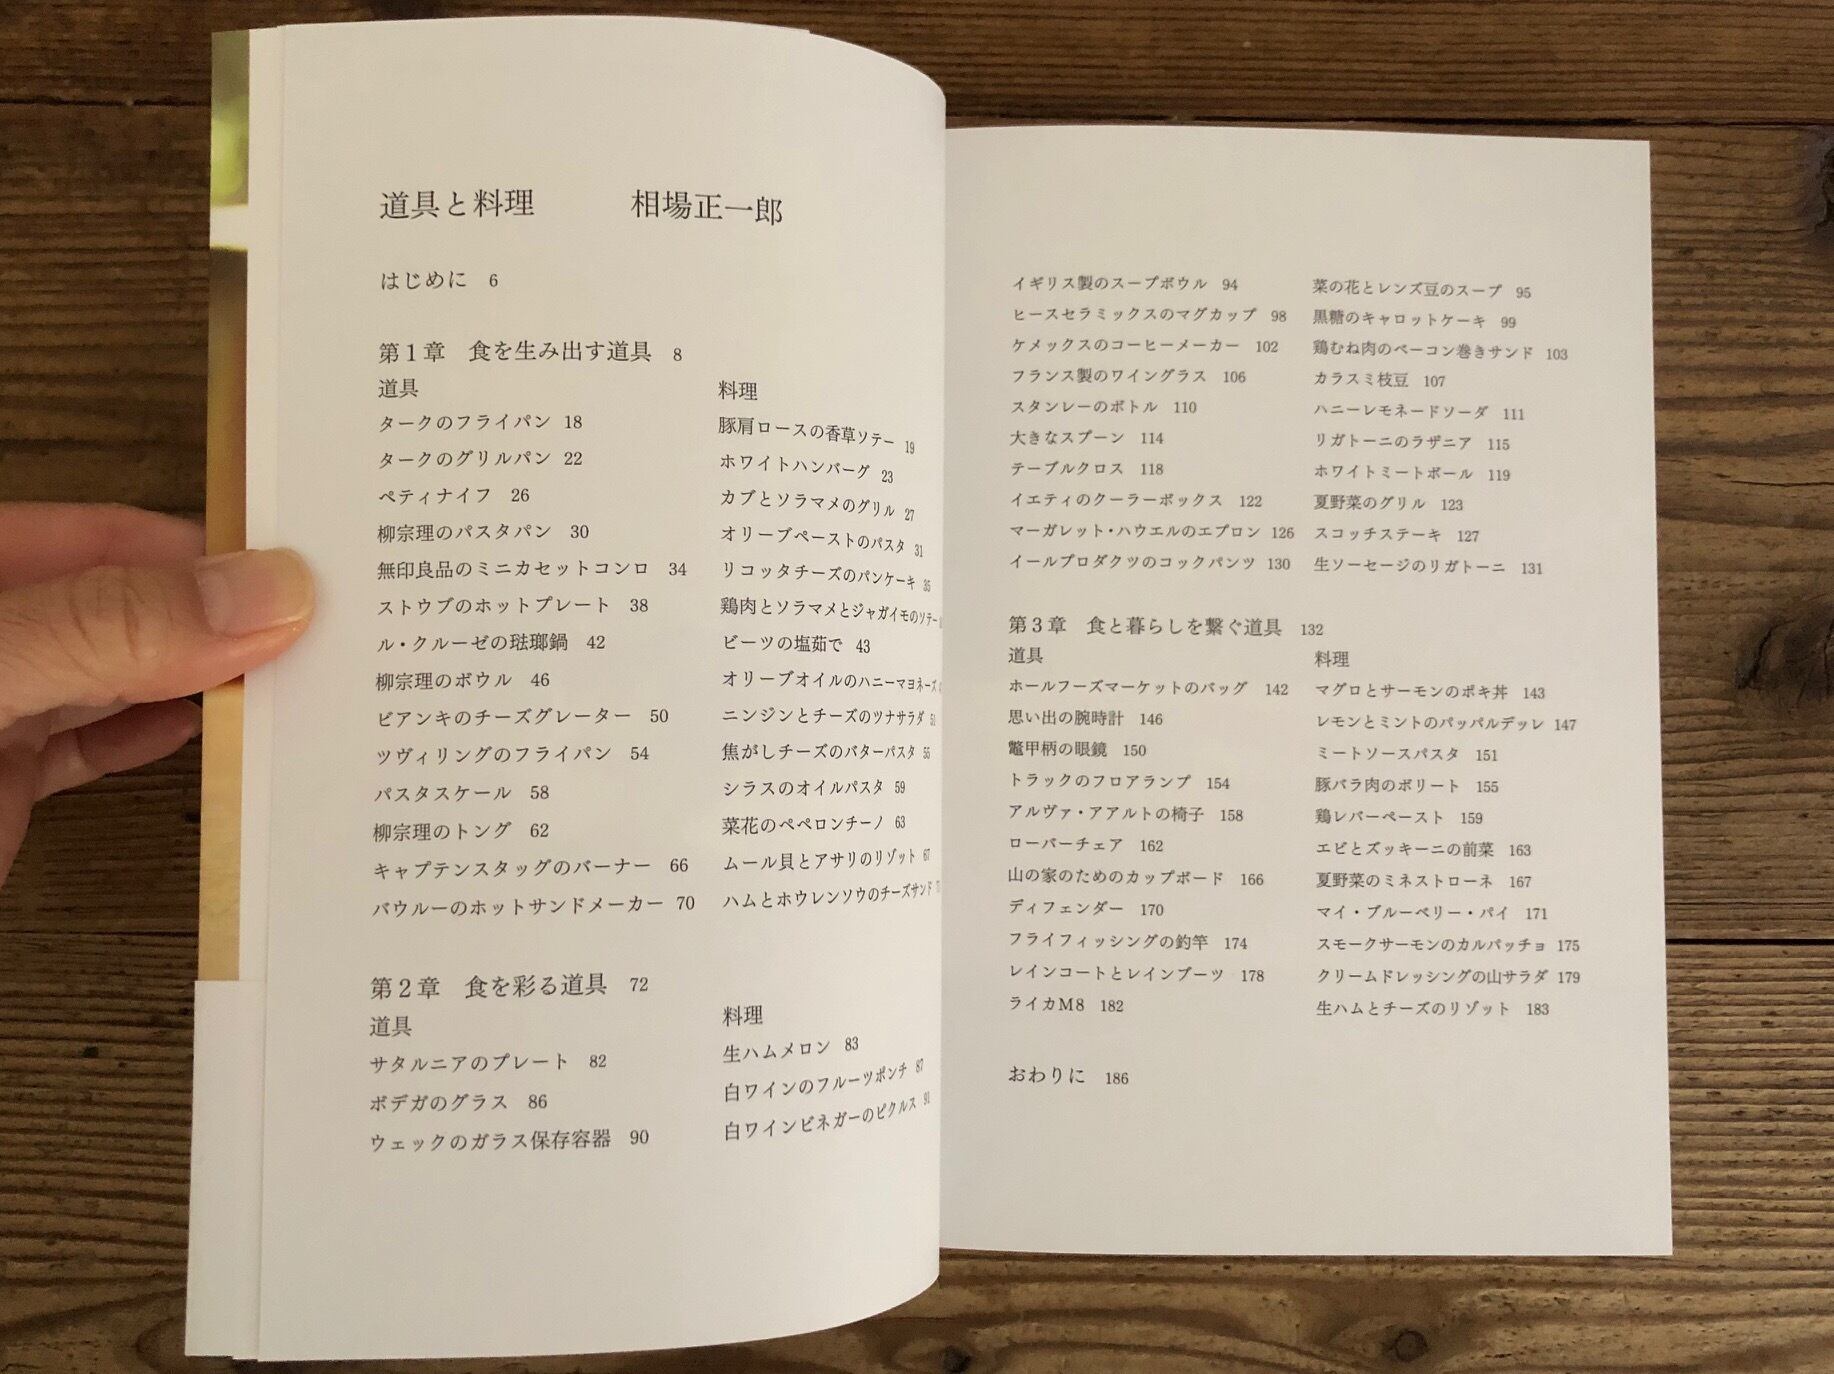 道具と料理 相場正一郎
はじめに 6
第1章 食を生み出す道具 8
道具 料理
タークのフライパン 18 豚肩ロースの香草ソテー 19
タークのグリルパン 22 ホワイトハンバーグ 23
ペティナイフ 26 カブとソラマメのグリル 27
柳宗理のパスタパン 30 オリーブペーストのパスタ 31
無印良品のミニカセットコンロ 34 リコッタチーズのパンケーキ 35
ストウブのホットプレート 38 鶏肉とソラマメとジャガイモのソテー
ル・クルーゼの琺瑯鍋 42 ビーツの塩茹で 43
柳宗理のボウル 46 オリーブオイルのハニーマヨネーズ
ビアンキのチーズグレーター 50 ニンジンとチーズのツナサラダ 51
ツヴィリングのフライパン 54 焦がしチーズのバターパスタ 55
パスタスケール 58 シラスのオイルパスタ 59
柳宗理のトング 62 菜花のペペロンチーノ 63
キャプテンスタッグのバーナー 66 ムール貝とアサリのリゾット 67
バウルーのホットサンドメーカー 70 ハムとホウレンソウのチーズサンド
第2章 食を彩る道具 72
道具 料理
サタルニアのプレート 82 生ハムメロン 83
ボデガのグラス 86 白ワインのフルーツポンチ 87
ウェックのガラス保存容器 90 白ワインビネガーのピクルス 91
イギリス製のスープボウル 94 菜の花とレンズ豆のスープ 95
ヒースセラミックスのマグカップ 98 黒糖のキャロットケーキ 99
ケメックスのコーヒーメーカー 102 鶏むね肉のベーコン巻きサンド 103
フランス製のワイングラス 106 カラスミ枝豆 107
スタンレーのボトル 110 ハニーレモネードソーダ 111
大きなスプーン 114 リガトーニのラザニア 115
テーブルクロス 118 ホワイトミートボール 119
イエティのクーラーボックス 122 夏野菜のグリル 123
マーガレット・ハウエルのエプロン 126 スコッチステーキ 127
イールプロダクツのコックパンツ 130 生ソーセージのリガトーニ 131
第3章 食と暮らしを繋ぐ道具 132
道具 料理
ホールフーズマーケットのバッグ 142 マグロとサーモンのポキ丼 143
思い出の腕時計 146 レモンとミントのパッパルデッレ 147
鼈甲柄の眼鏡 150 ミートソースパスタ 151
トラックのフロアランプ 154 豚バラ肉のボリート 155
アルヴァ・アアルトの椅子 158 鶏レバーペースト 159
ローバーチェア 162 エビとズッキーニの前菜 163
山の家のためのカップボード 166 夏野菜のミネストローネ 167
ディフェンダー 170 マイ・ブルーベリー・パイ 171
フライフィッシングの釣竿 174 スモークサーモンのカルパッチョ 175
レインコートとレインブーツ 178 クリームドレッシングの山サラダ 179
ライカM8 182 生ハムとチーズのリゾット 183
おわりに 186